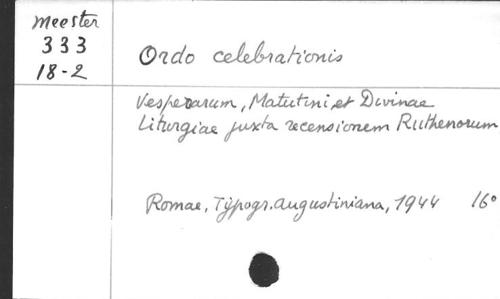 Meester
333
18-2
Ordo celebrationis
Vesperarum, Matutini, et Divinae
Liturgiae juxta recensionem Ruthenorum
Romae, Typogr. Augustiniana, 1944 16°